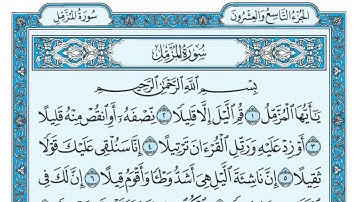 الجزء التاسع والعشرون
سورة المزمل
سورة المزمل
بِسْمِ ٱللَّهِ ٱلرَّحْمَٰنِ ٱلرَّحِيمِ
يَٰٓأَيُّهَا ٱلْمُزَّمِّلُ ١ قُمِ ٱلَّيْلَ إِلَّا قَلِيلًا ٢ نِّصْفَهُۥٓ أَوِ ٱنقُصْ مِنْهُ قَلِيلًا
٣ أَوْ زِدْ عَلَيْهِ وَرَتِّلِ ٱلْقُرْءَانَ تَرْتِيلًا ٤ إِنَّا سَنُلْقِى عَلَيْكَ قَوْلًا
ثَقِيلًا ٥ إِنَّ نَاشِئَةَ ٱلَّيْلِ هِىَ أَشَدُّ وَطْـًٔا وَأَقْوَمُ قِيلًا ٦ إِنَّ لَكَ فِى